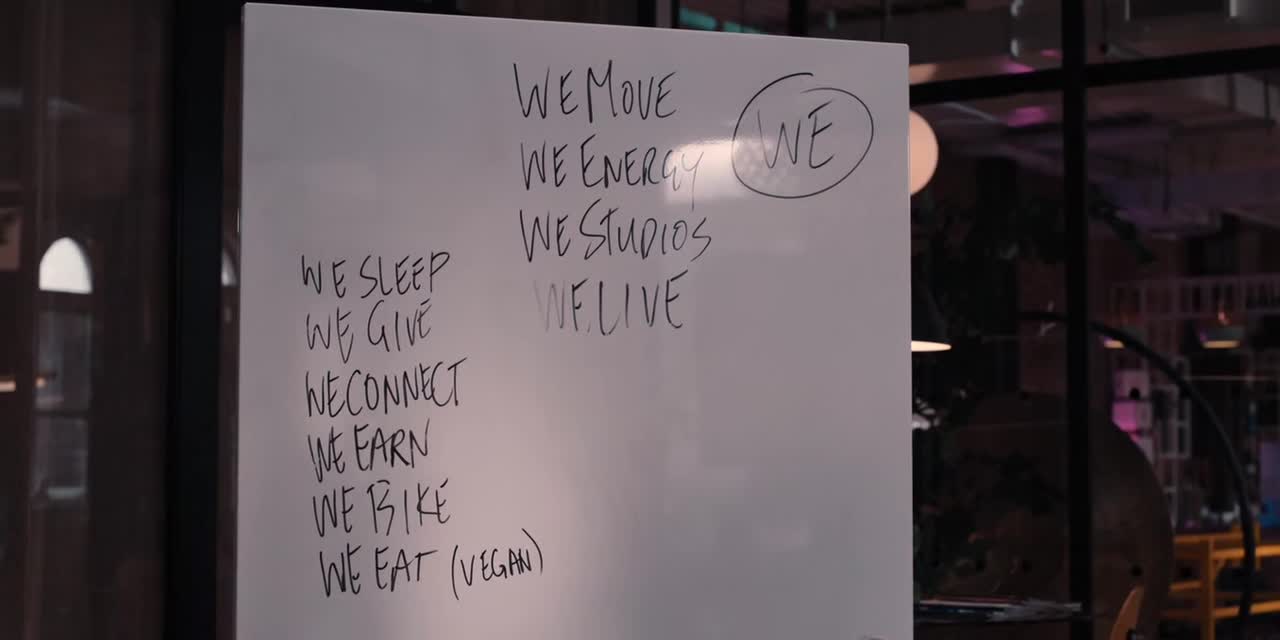 WE MOVE
WE ENERGY
WE STUDIOS
WE LIVE
WE
WE SLEEP
WE GIVE
WE CONNECT
WE EARN
WE BIKE
WE EAT (VEGAN)